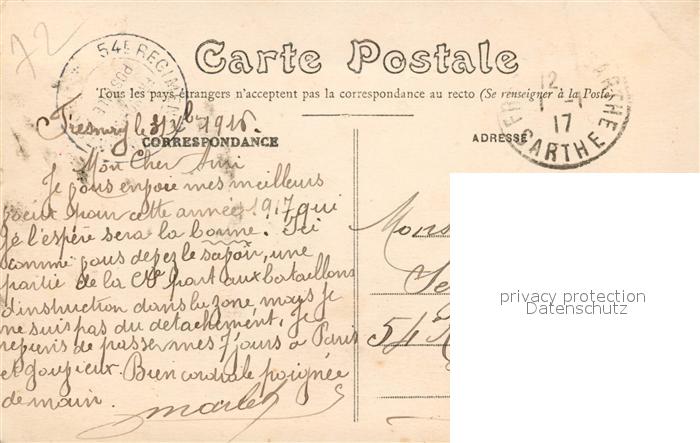 72
54E REGIMEN
Carte Postale
Tous les pays étrangers n'acceptent pas la correspondance au recto (Se renseigner à la Poste)
12
1-1
17
SARTHE
Fresnay le 31 Xbre 1916.
CORRESPONDANCE
ADRESSE
Mon Cher Ami
Je vous envoie mes meilleurs
voeux pour cette année 1917 qui
je l'espère sera la bonne. Ici
comme vous devez le savoir, une
partie de la Cie part aux bataillons
d'instruction dans la zone mais je
ne suis pas du détachement. Je
reviens de passer mes 7 jours à Paris
et Bien cordiale poignée
de main.
Mons
Se
54 R
privacy protection
Datenschutz